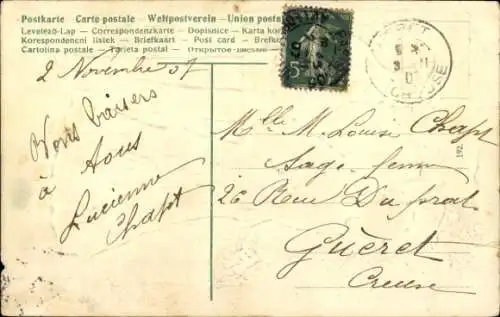 Postkarte Carte postale Weltpostverein Union postale
Levelező-Lap — Correspondenzkarte — Dopisnice — Karta
Korespondenční lístek — Briefkaart — Post card — Brefkort
Cartolina postale — Tarjeta postal — Открытое письмо
5
2 Novembre 07
Bons baisers
à tous
Lucienne
Chapt
Mlle M. Louise Chapt
Sage femme
26 Rue Du prat
Guéret
Creuse
192